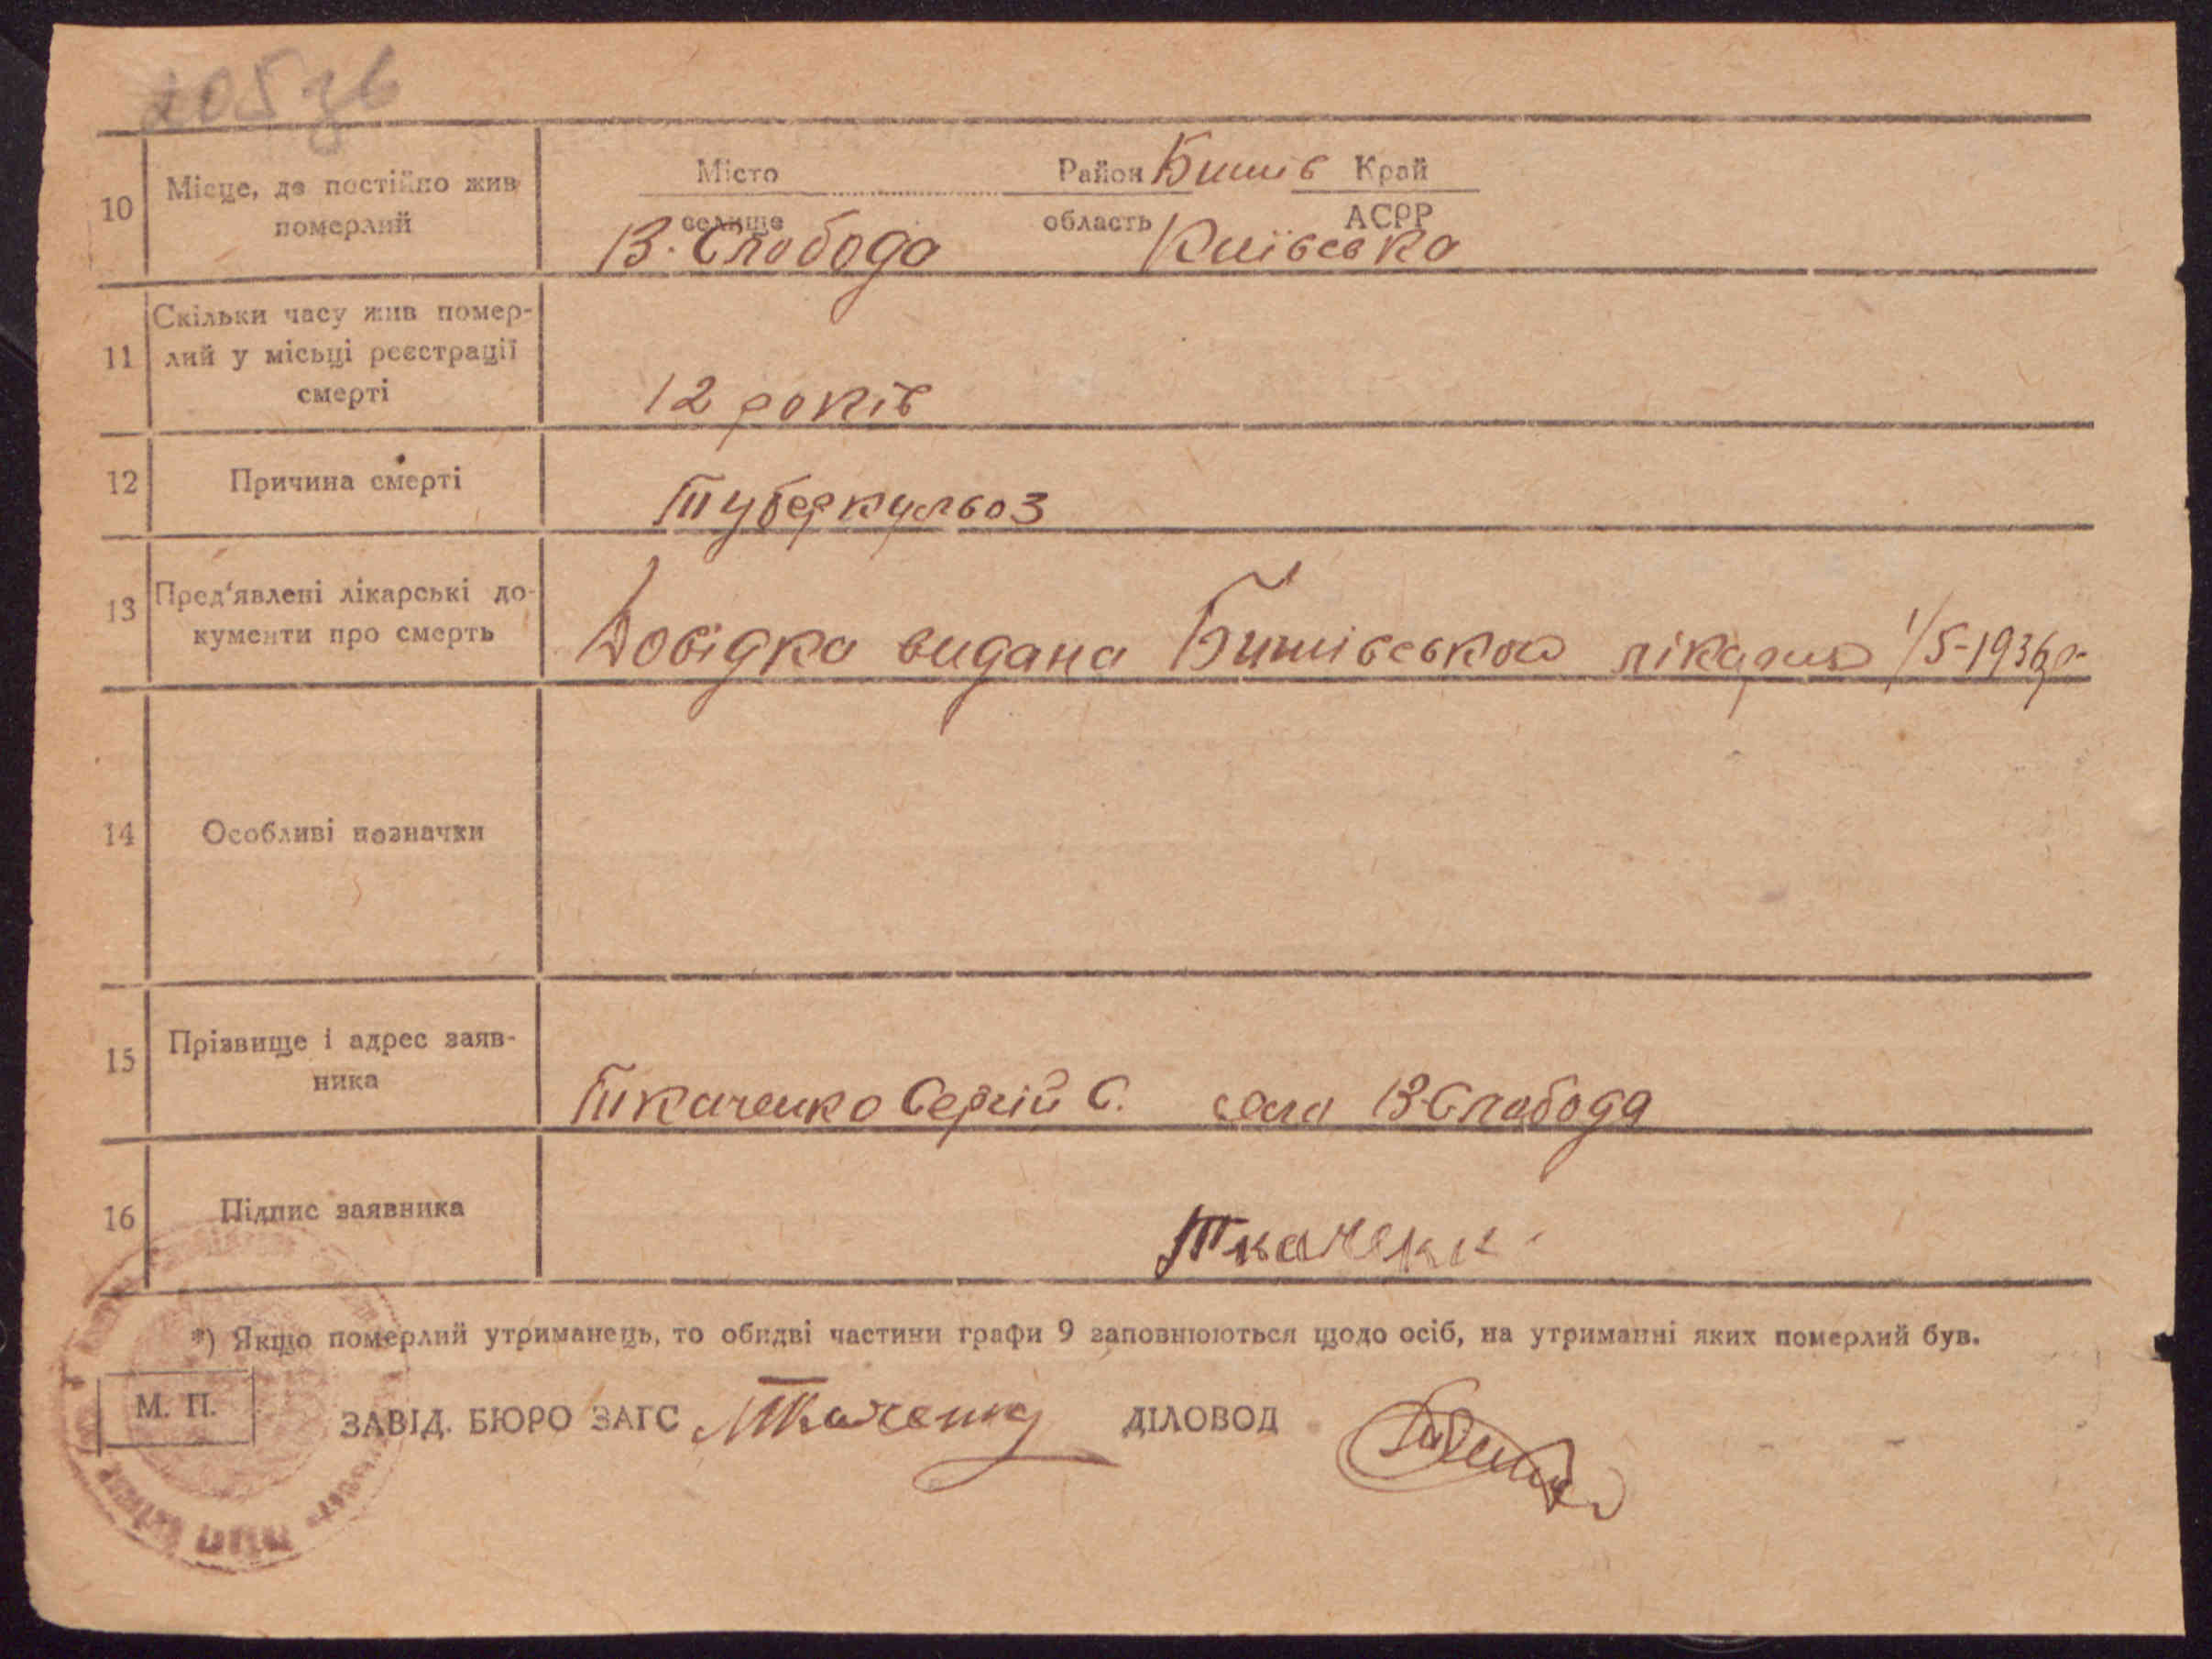 205 зв
10 Місце, де постійно жив
померлий
Місто Район Бишів Край
селище область АСРР
В. Слобода Київська
11 Скільки часу жив помер-
лий у місьці реєстрації
смерті
12 років
12 Причина смерті
Туберкульоз
13 Пред'явлені лікарські до-
кументи про смерть
Довідка видана Бишівською лікарнью 1/5-1936р.
14 Особливі позначки
15 Прізвище і адрес заяв-
ника
Ткаченко Сергій С. село В-Слобода
16 Підпис заявника
Ткаченк
*) Якщо померлий утриманець, то обидві частини графи 9 заповнюються щодо осіб, на утриманні яких померлий був.
М. П.
ЗАВІД. БЮРО ЗАГС Ткаченко ДІЛОВОД